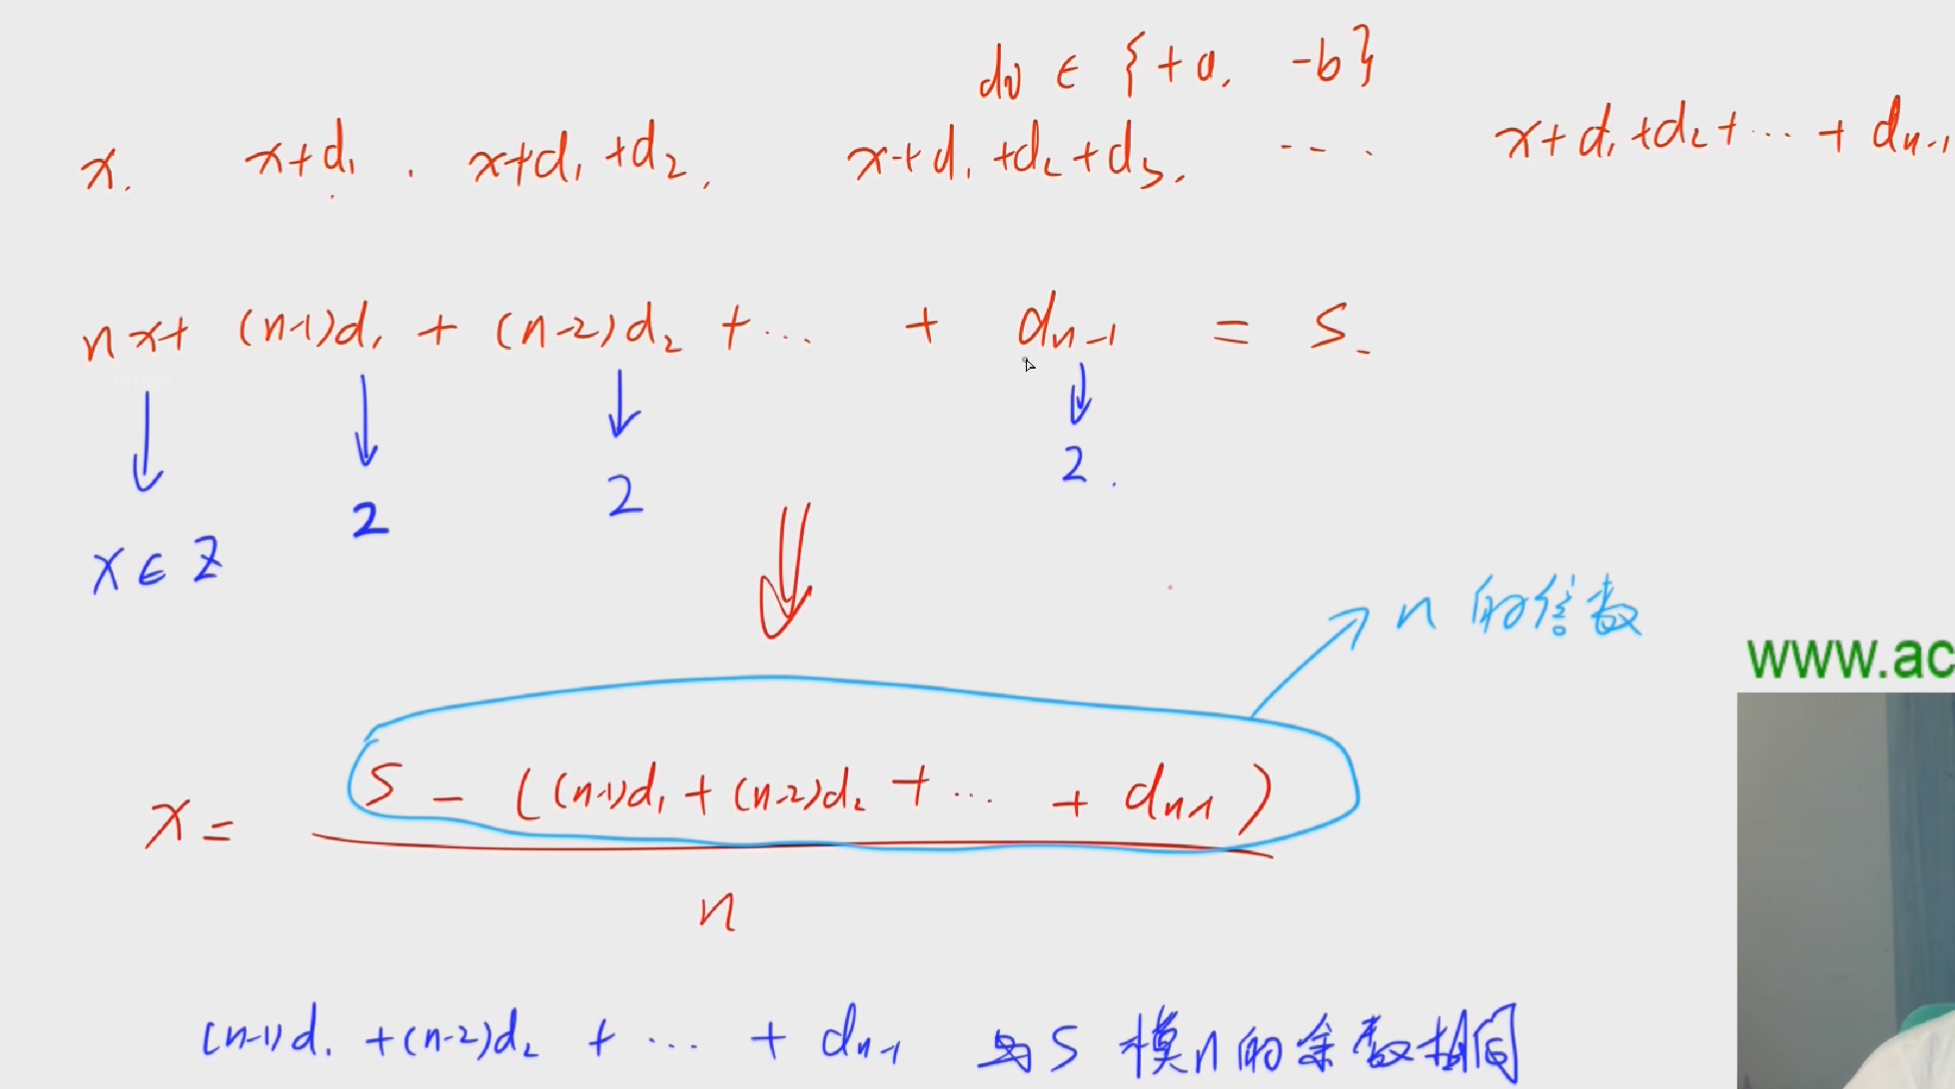 di ∈ {+a, -b}
x. x+d₁. x+d₁+d₂, x+d₁+d₂+d₃. ---. x+d₁+d₂+···+dn-1
nx+ (n-1)d₁ + (n-2)d₂ +··· + dn-1 = S.
2 2 2.
x∈Z
n的倍数
www.ac
x= S - ((n-1)d₁+(n-2)d₂+···+dn-1)
n
(n-1)d₁+(n-2)d₂ + ··· + dn-1 与S模n的余数相同